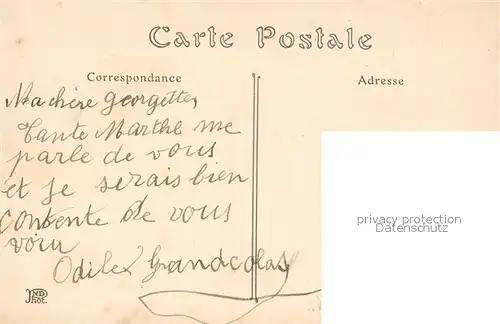 Carte Postale
Correspondance
Adresse
Ma chère georgette,
tante Marthe me
parle de vous
et je serais bien
contente de vous
voir
Odile Grandcolas
privacy protection
ND
Phot.